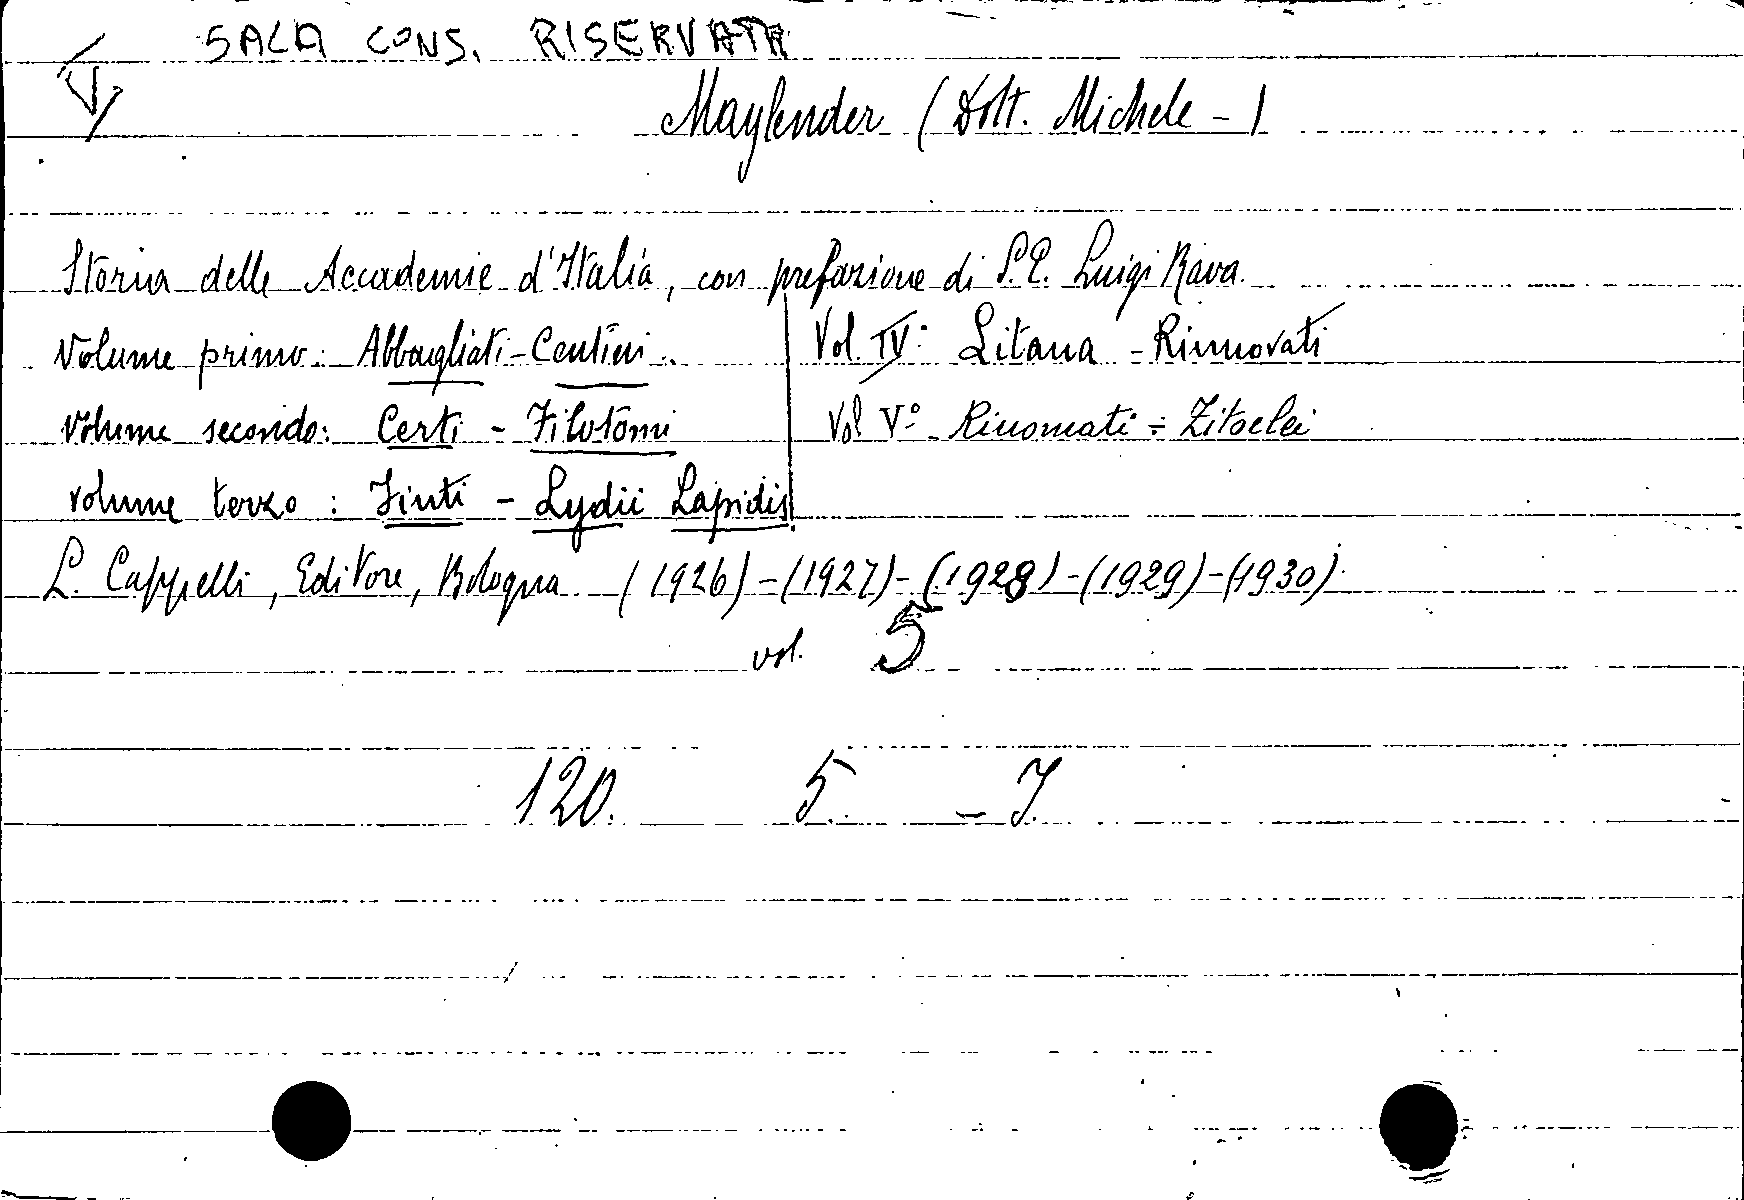 SALA CONS. RISERVATA
Maylender (Dott. Michele - )
Storia delle Accademie d'Italia, con prefazione di S.E. Luigi Rava.
Volume primo: Abbagliati - Centini.
Volume secondo: Certi - Filotomi
volume terzo: Finti - Lydii Lapidis
Vol. IV° Litana - Rinnovati
Vol V° Rinomati - Zitoclei
L. Cappelli, Editore, Bologna (1926) - (1927) - (1928) - (1929) - (1930).
vol. 5
120. 5. - 7.